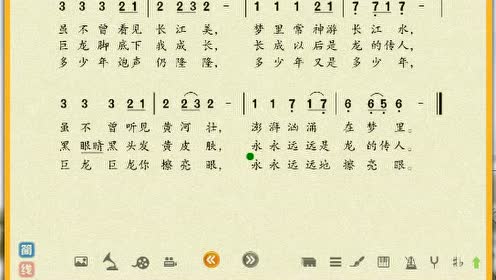 3 3 3 21 2 232 - 1 1 7 17 5 7 6 -
虽 不 曾 看见 长 江 美, 梦 里 常 神游 长 江 水,
巨 龙 脚 底下 我 成 长, 长 成 以 后是 龙 的 传 人,
多 少 年 炮声 仍 隆 隆, 多 少 年 又是 多 少 年,
3 3 3 21 2 232 - 1 1 7 17 6 656 -
虽 不 曾 听见 黄 河 壮, 澎 湃 汹 涌 在 梦 里。
黑 眼睛 黑 头发 黄 皮 肤, 永 永 远 远是 龙 的传 人。
巨 龙 巨 龙你 擦 亮 眼, 永 永 远 远地 擦 亮 眼。
简
线